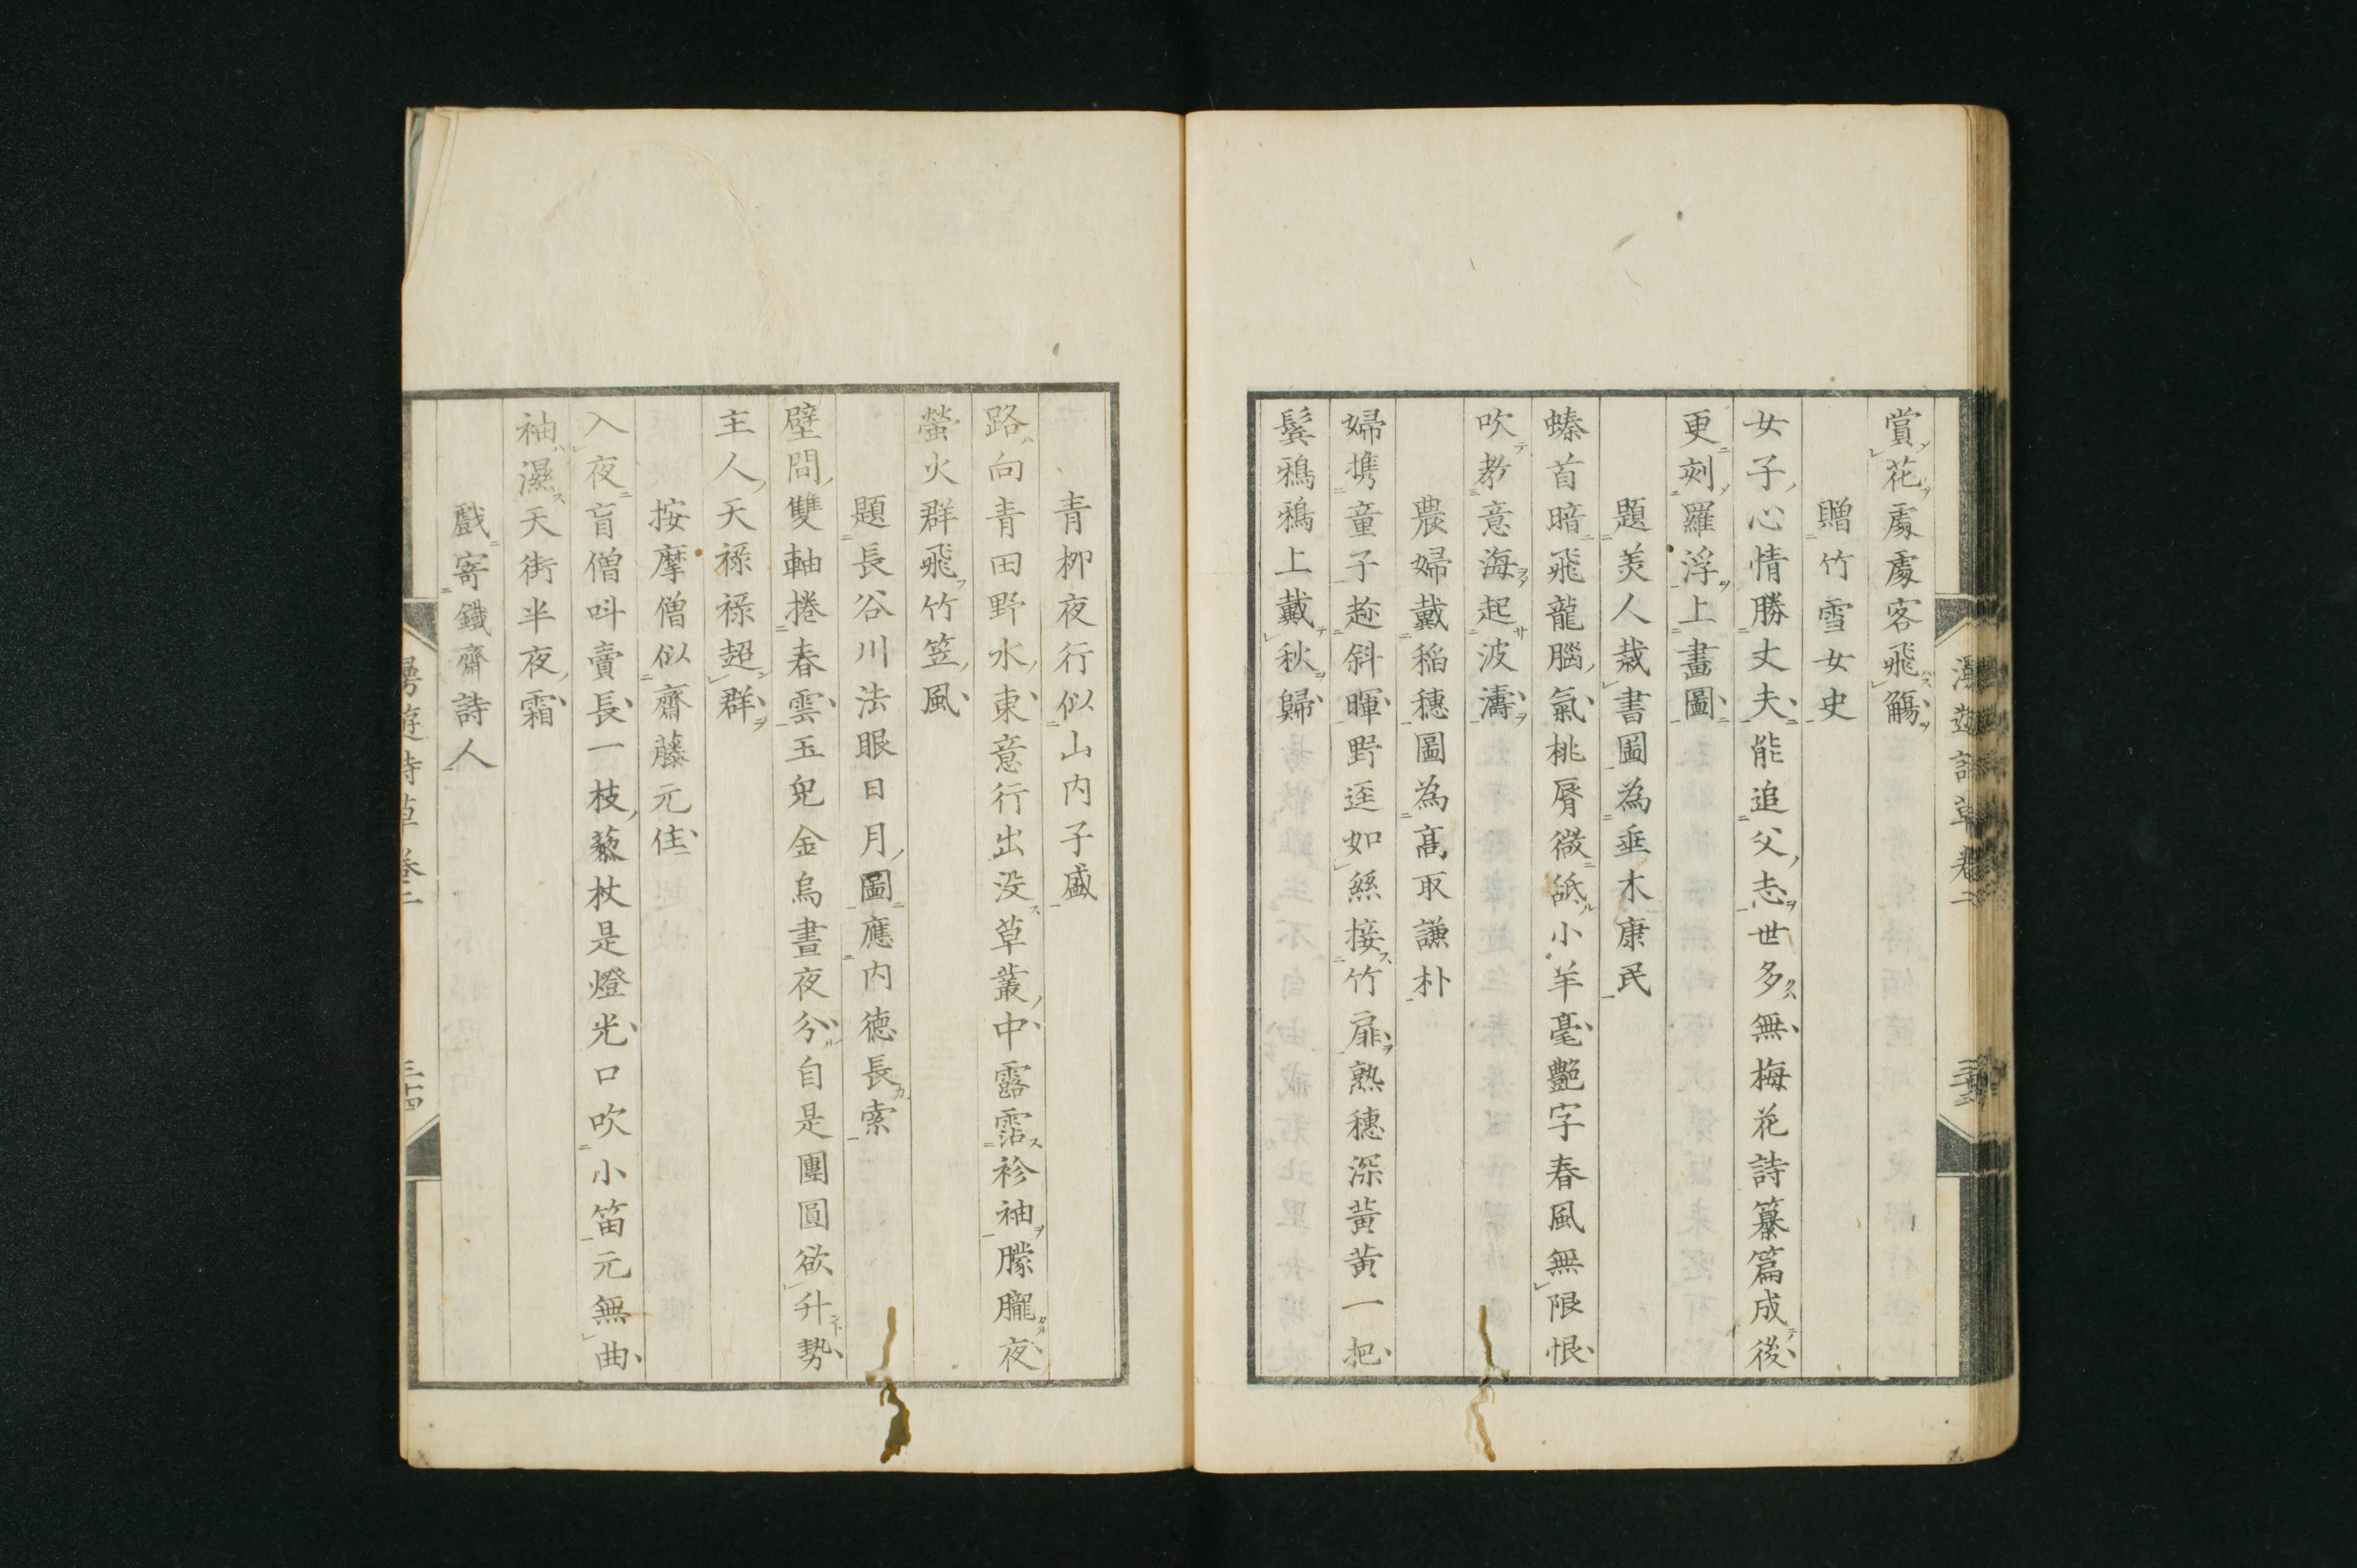 賞花處處客飛觴
贈竹雪女史
女子心情勝丈夫能追父志世多無梅花詩纂篇成後
更刻羅浮上畫圖
題美人裁書圖為垂木康民
螓首暗飛龍腦氣桃脣微舐小羊毫艷字春風無限恨
吹教意海起波濤
農婦戴稲穗圖為髙取謙朴
婦携童子趂斜暉野逕如絲接竹扉熟穗深黄黄一把
鬓鴉鴉上戴秋歸
青柳夜行似山内子盛
路向青田野水東意行出没草叢中露霑袗袖朦朧夜
螢火群飛竹笠風
題長谷川法眼日月圖應内德長索
壁間雙軸捲春雲玉兔金烏晝夜分自是團圓欲升勢
主人天祿祿超群
按摩僧似齋藤元佳
入夜盲僧呌賣長一枝藜杖是燈光口吹小笛元無曲
袖濕天街半夜霜
戲寄鐵齋詩人
遊詩草卷二
三十四